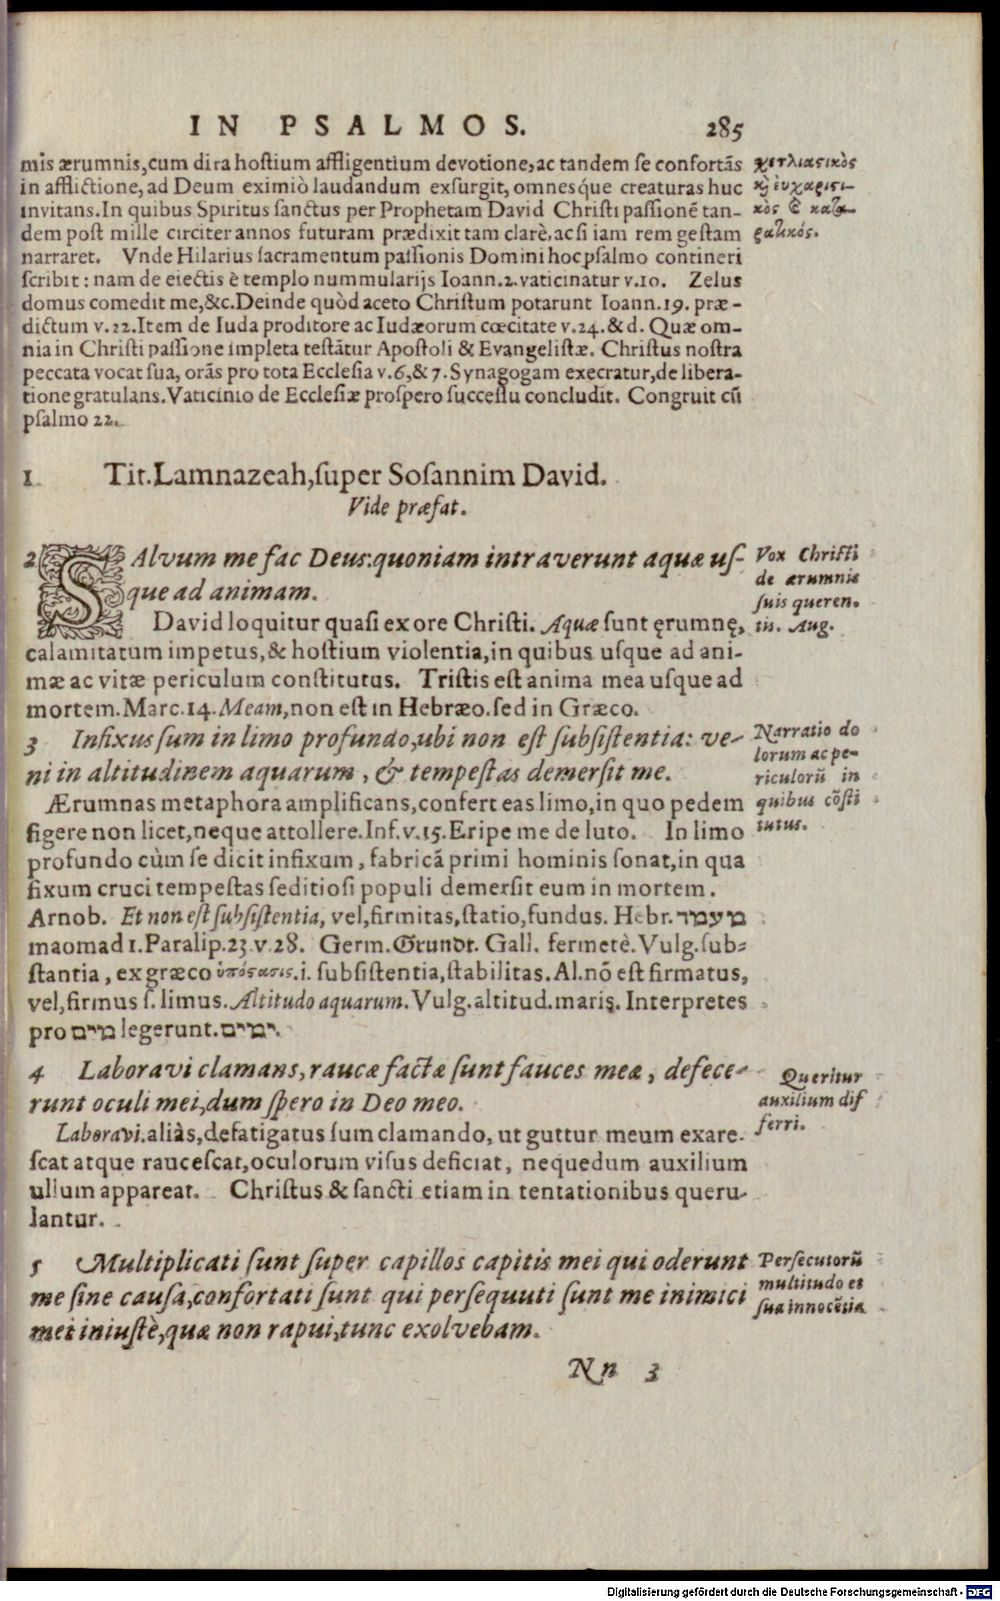 IN PSALMOS. 285
mis ærumnis,cum dira hostium affligentium devotione,ac tandem se confortãs
in afflictione,ad Deum eximiò laudandum exsurgit,omnesque creaturas huc
invitans.In quibus Spiritus sanctus per Prophetam David Christi passionẽ tan-
dem post mille circiter annos futuram prædixit tam clarè,ac si iam rem gestam
narraret. Vnde Hilarius sacramentum passionis Domini hoc psalmo contineri
scribit: nam de eiectis è templo nummularijs Ioann.2.vaticinatur v.10. Zelus
domus comedit me,&c.Deinde quòd aceto Christum potarunt Ioann.19. præ-
dictum v.22.Item de Iuda proditore ac Iudæorum cœcitate v.24.& d. Quæ om-
nia in Christi passione impleta testãtur Apostoli & Evangelistæ. Christus nostra
peccata vocat sua, orãs pro tota Ecclesia v.6,& 7. Synagogam execratur,de libera-
tione gratulans.Vaticinio de Ecclesiæ prospero successu concludit. Congruit cũ
psalmo 22.
χετλιαςικὸς
κ̀ εὐχαριςι-
κὸς
1 Tit.Lamnazeah,super Sosannim David.
Vide præfat.
2 SAlvum me fac Deus:quoniam intraverunt aquæ us-
que ad animam.
Vox Christi
de ærumnis
suis queren.
tis. Aug.
David loquitur quasi ex ore Christi. Aquæ sunt ęrumnę,
calamitatum impetus,& hostium violentia,in quibus usque ad ani-
mæ ac vitæ periculum constitutus. Tristis est anima mea usque ad
mortem.Marc.14.Meam,non est in Hebræo.sed in Græco.
3 Infixus sum in limo profundo,ubi non est subsistentia: ve-
ni in altitudinem aquarum, & tempestas demersit me.
Narratio do
lorum ac pe-
riculorũ in
quibus cõsti
tutus.
Ærumnas metaphora amplificans,confert eas limo,in quo pedem
figere non licet,neque attollere.Inf.v.15.Eripe me de luto. In limo
profundo cùm se dicit infixum, fabricã primi hominis sonat,in qua
fixum cruci tempestas seditiosi populi demersit eum in mortem.
Arnob. Et non est subsistentia, vel,firmitas,statio,fundus. Hebr.מעמד
maomad 1.Paralip.23.v.28. Germ.Grundt. Gall. fermetè.Vulg.sub-
stantia, ex græco ὑπόςασις.i. subsistentia,stabilitas.Al.nõ est firmatus,
vel,firmus s.limus.Altitudo aquarum.Vulg.altitud.maris.Interpretes
pro מים legerunt.ימים.
4 Laboravi clamans, raucæ factæ sunt fauces meæ, defece-
runt oculi mei,dum spero in Deo meo.
Queritur
auxilium dif
ferri.
Laboravi.aliàs,defatigatus sum clamando, ut guttur meum exare-
scat atque raucescat,oculorum visus deficiat, nequedum auxilium
ullum appareat. Christus & sancti etiam in tentationibus queru-
lantur.
5 Multiplicati sunt super capillos capitis mei qui oderunt
me sine causa,confortati sunt qui persequuti sunt me inimici
mei iniustè,quæ non rapui,tunc exolvebam.
Persecutorũ
multitudo et
sua innocẽtia
Nn 3
Digitalisierung gefördert durch die Deutsche Forschungsgemeinschaft - DFG